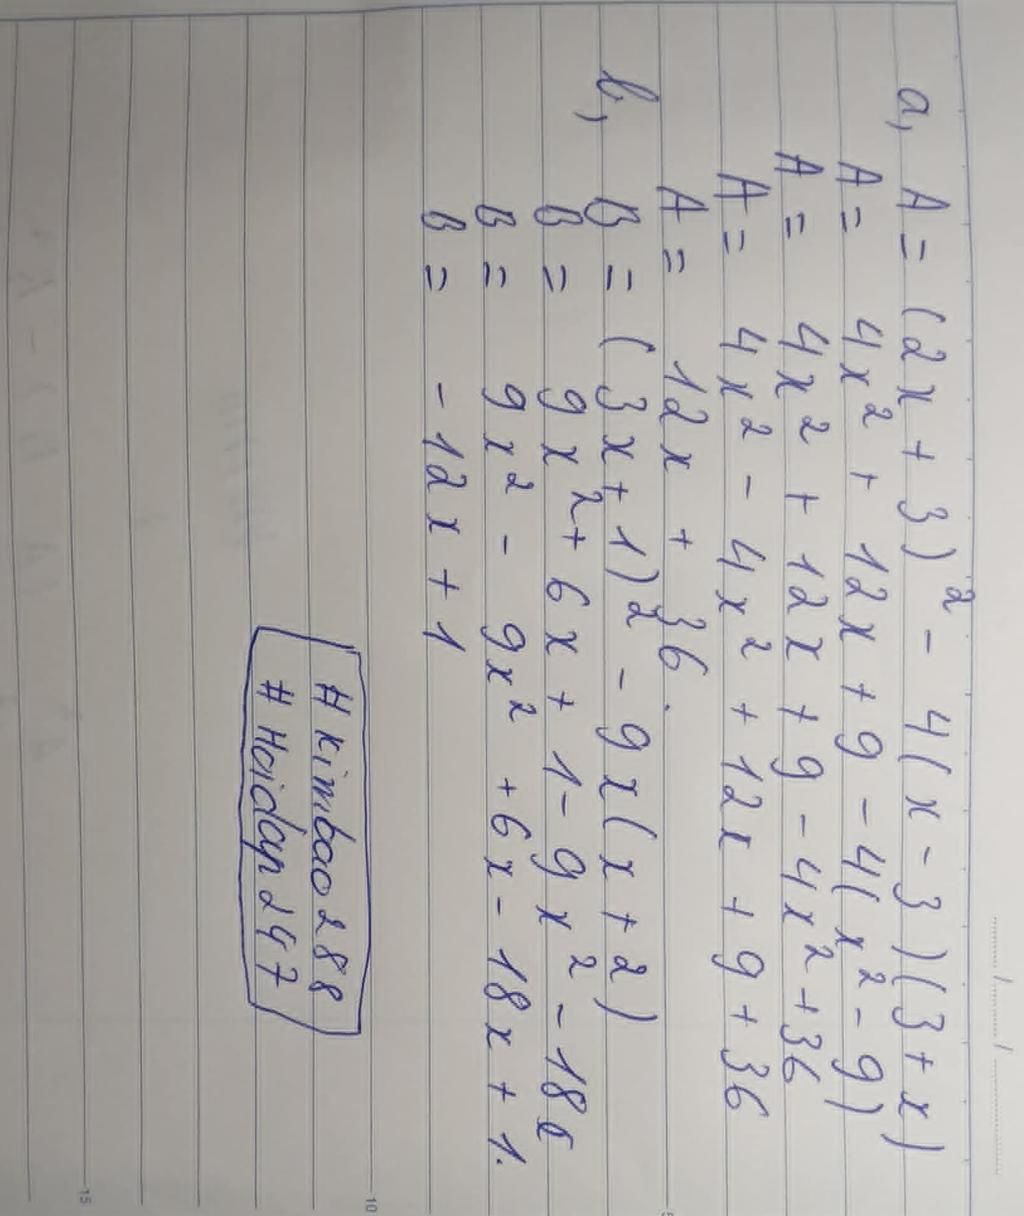 a, A = (2x + 3)² - 4(x - 3)(3 + x)
A = 4x² + 12x + 9 - 4(x² - 9)
A = 4x² + 12x + 9 - 4x² + 36
A = 4x² - 4x² + 12x + 9 + 36
A = 12x + 36.
b, B = (3x + 1)² - 9x(x + 2)
B = 9x² + 6x + 1 - 9x² - 18x
B = 9x² - 9x² + 6x - 18x + 1.
B = -12x + 1
#kimbao288
#Hoidap247
5
10
15